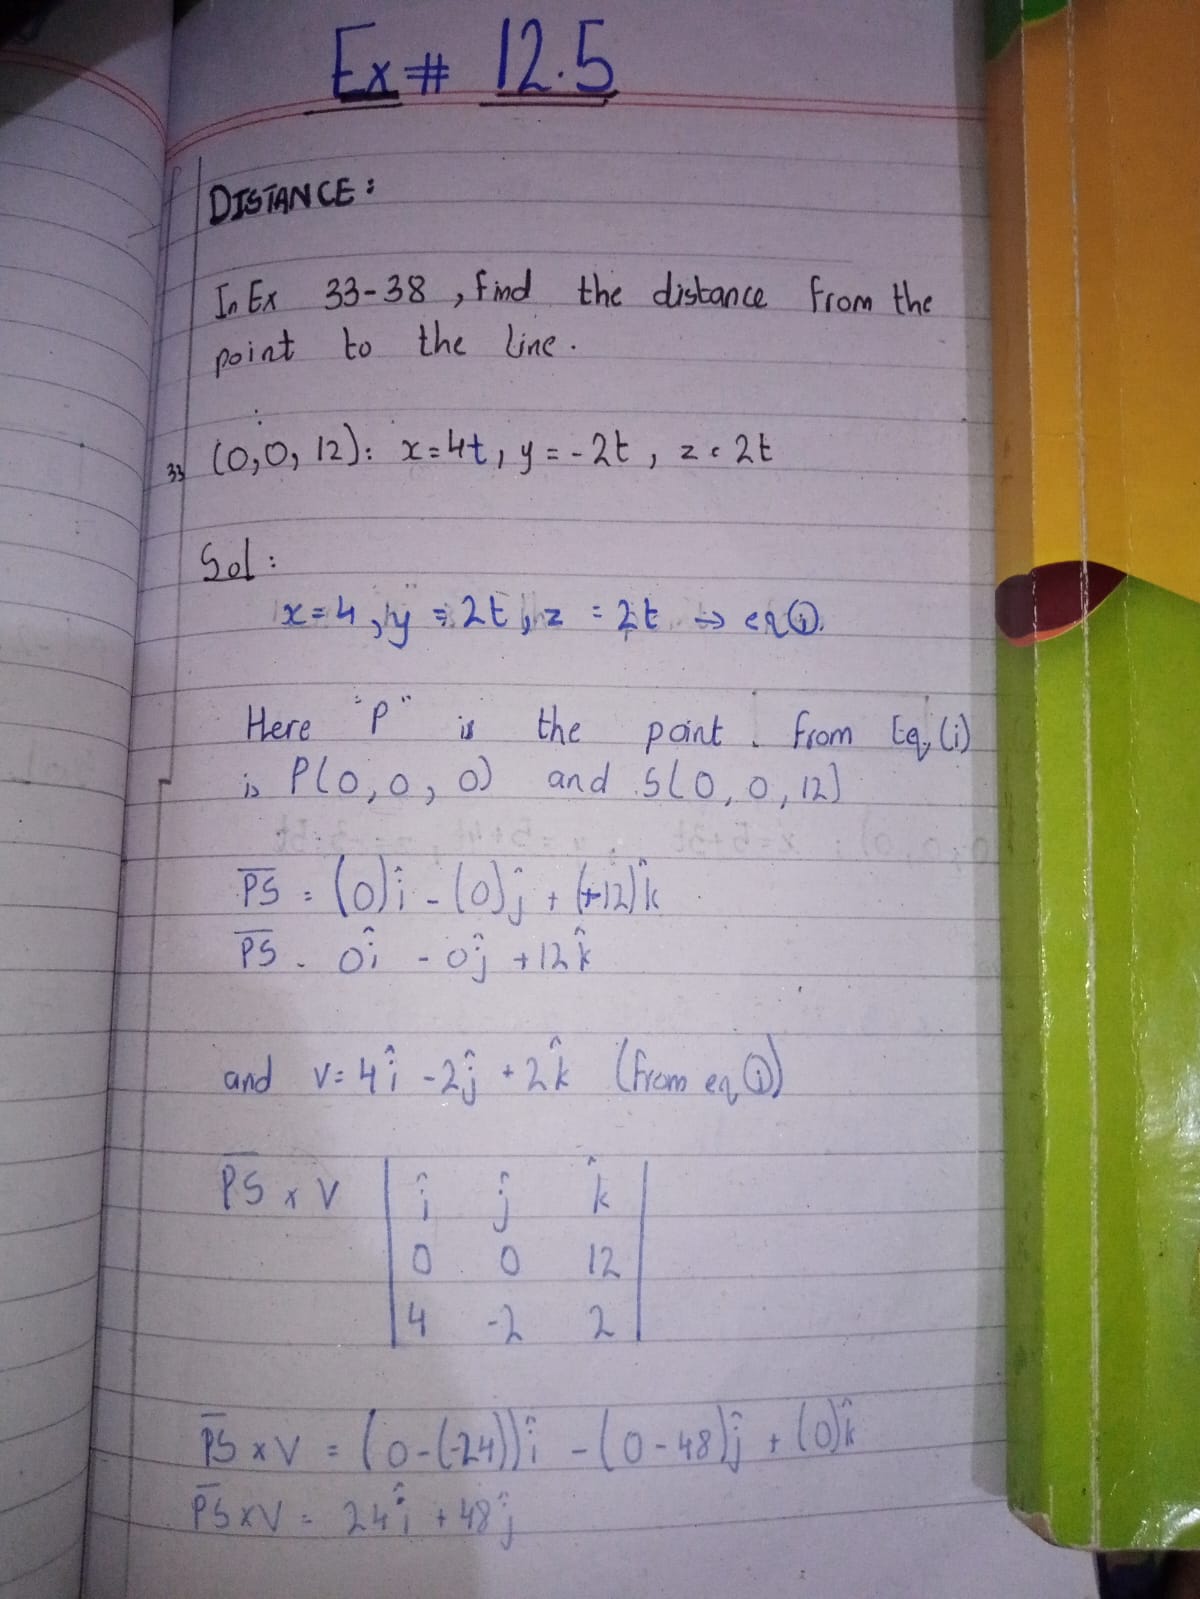 Ex# 12.5
DISTANCE:
In Ex 33-38, find the distance from the
point to the line.
33 (0,0,12): x=4t, y=-2t, z=2t
Sol:
x=4, y=2t, z=2t → eq(i).
Here "P" is the point. from Eq,(i)
is P(0,0,0) and S(0,0,12)
PS = (0)î - (0)ĵ + (+12)k̂
PS = 0î - 0ĵ + 12k̂
and v= 4î - 2ĵ + 2k̂ (from eq(i))
PS x V | î ĵ k̂ |
0 0 12
4 -2 2
PS x V = (0-(-24))î - (0-48)ĵ + (0)k̂
PS x V = 24î + 48ĵ